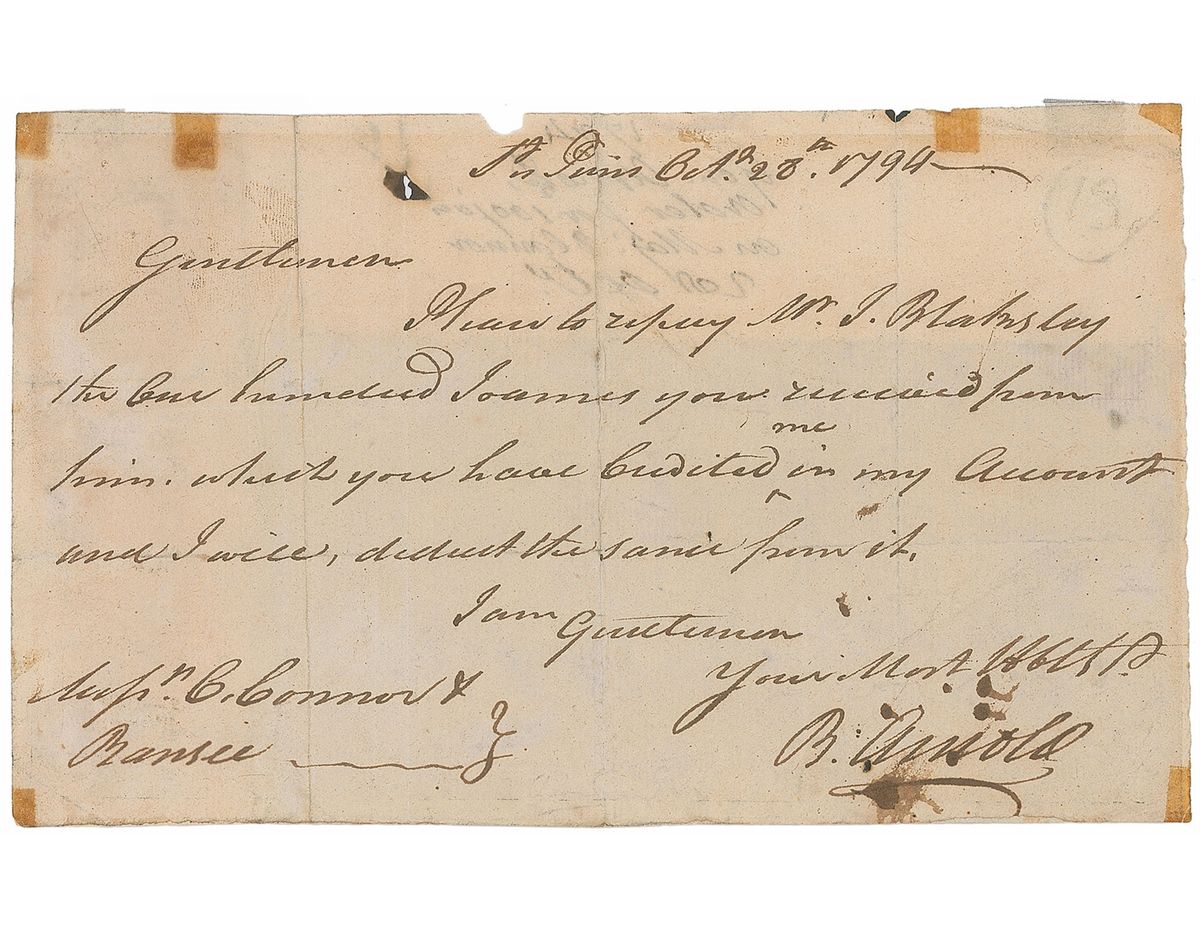 Octr. 28th. 1794
Gentlemen
Please to repay Mr. J. Blaksley
the One hundred Joannes you received from
him. which you have Credited in my Account
me
and I will, deduct the same from it.
I am Gentlemen
Your Most Hble St.
B. Arnold
Messrs. C. Connor &